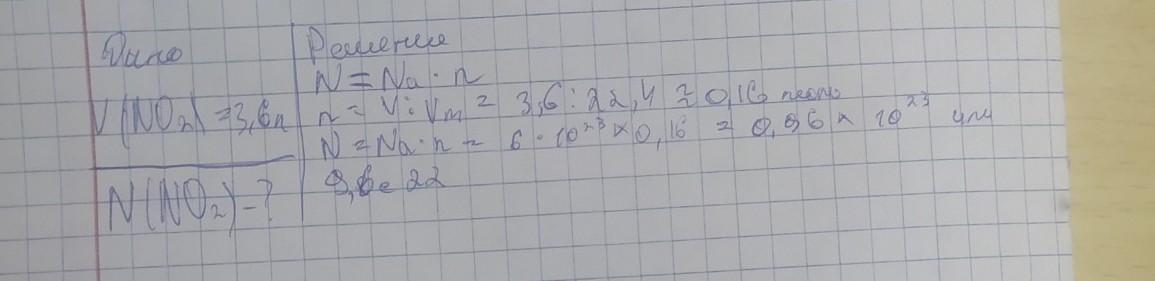 Дано
V(NO₂) = 3,6л
N(NO₂) - ?
Решение
N = Na · n
n = V : Vm = 3,6 : 22,4 ≈ 0,16 моль
N = Na · n = 6 · 10²³ × 0,16 = 0,96 × 10²³ или
9,6e22